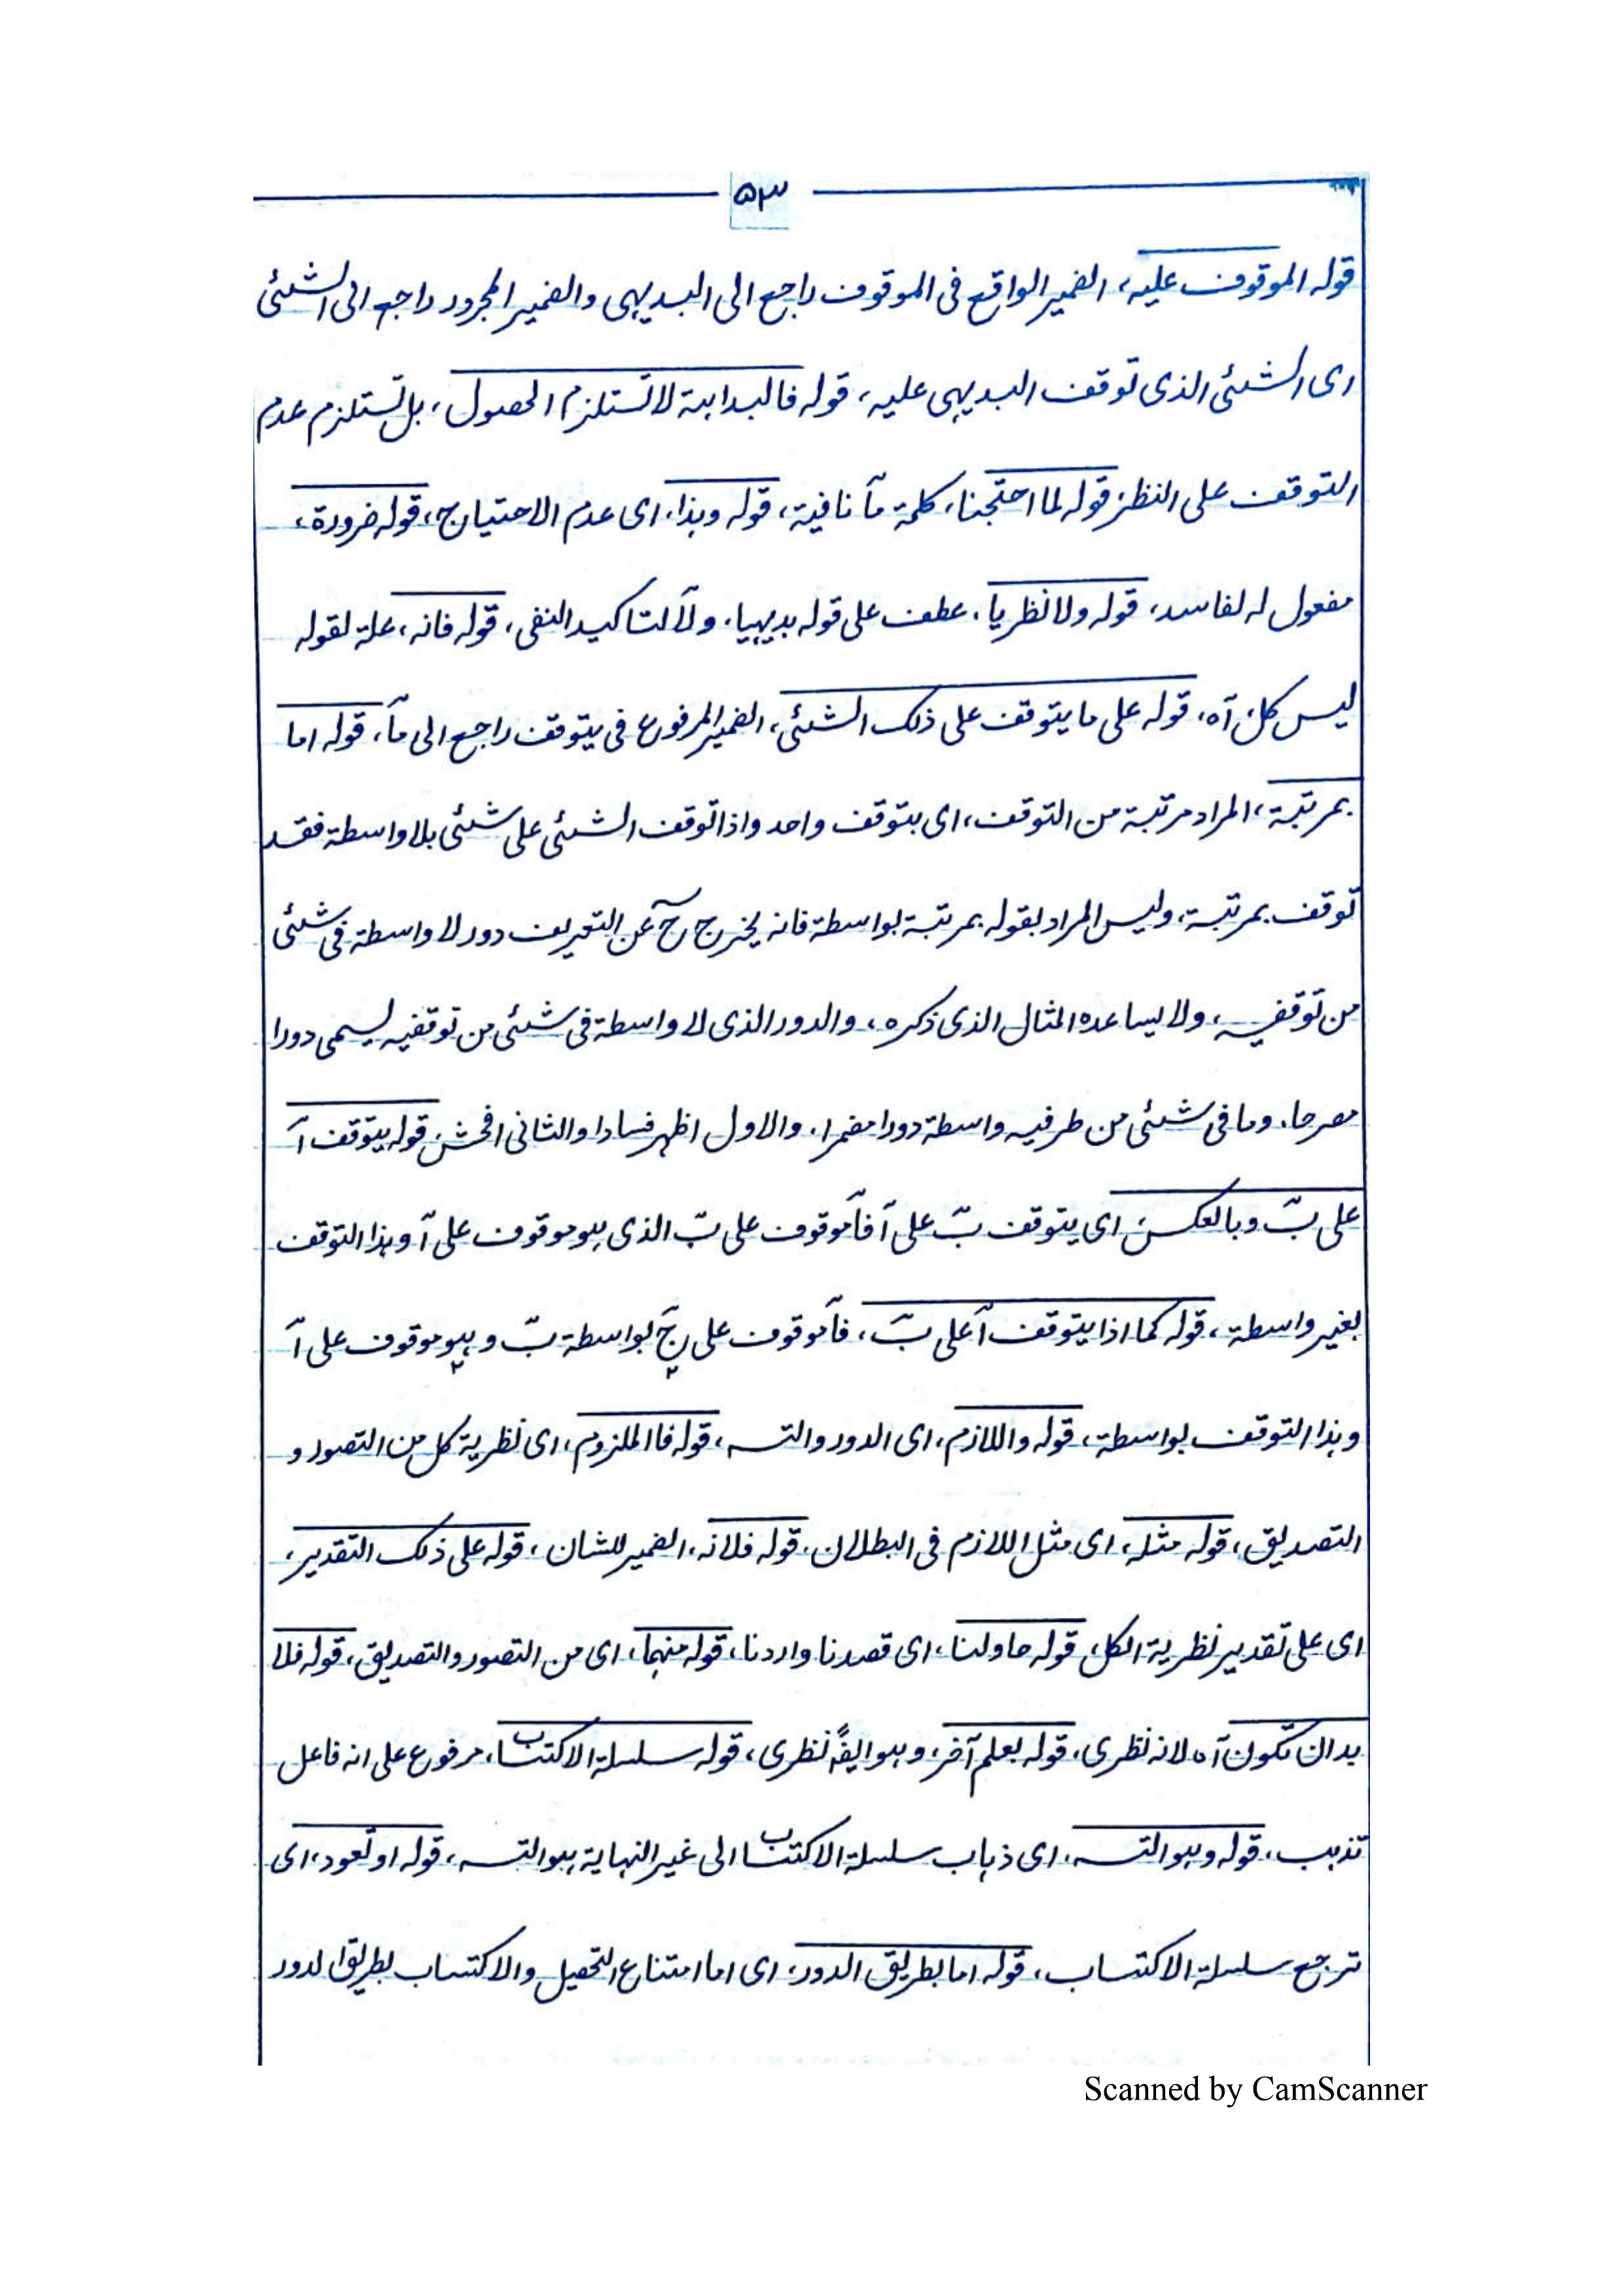 ۵۳
قوله الموقوف عليه، الضمير الواقع فى الموقوف راجع الى البديهى والضمير المجرور راجع الى الشئى
اى الشئى الذى توقف البديهى عليه، قوله فالبداهة لا تستلزم الحصول، بل تستلزم عدم
التوقف على النظر، قوله لما احتجنا، كلمة مآ نافية، قوله وهذا، اى عدم الاحتياج، قوله ضرورة،
مفعول له لفاسد، قوله ولا نظريا، عطف على قوله بديهيا، ولآ لتاكيد النفى، قوله فانه، علة لقوله
ليس كل، آه، قوله على ما يتوقف على ذلك الشئى، الضمير المرفوع فى يتوقف راجع الى مآ، قوله اما
بمرتبة، المراد مرتبة من التوقف، اى بتوقف واحد واذا توقف الشئى على شئى بلا واسطة فقد
توقف بمرتبة، وليس المراد بقوله بمرتبة بواسطة فانه يخرج حٓ عن التعريف دور لا واسطة فى شئى
من توقفيه، ولا يساعده المثال الذى ذكره، والدور الذى لا واسطة فى شئى من توقفيه يسمى دورا
مصرحا، وما فى شئى من طرفيه واسطة دورا مضمرا، والاول اظهر فسادا والثانى افحش، قوله يتوقف آ
على بٓ وبالعكس، اى يتوقف بٓ على آ فآ موقوف على بٓ الذى هو موقوف على آ وهذا التوقف
بغير واسطة، قوله كما اذا يتوقف آ على بٓ، فآ موقوف على جٓ بواسطة بٓ و هو موقوف على آ
وهذا التوقف بواسطة، قوله واللازم، اى الدور والتسـ، قوله فالملزوم، اى نظرية كل من التصور و
التصديق، قوله مثله، اى مثل اللازم فى البطلان، قوله فلانه، الضمير للشان، قوله على ذلك التقدير،
اى على تقدير نظرية الكل، قوله حاولنا، اى قصدنا واردنا، قوله منهما، اى من التصور والتصديق، قوله فلا
بد ان تكون آه لانه نظرى، قوله بعلم آخر، وهو ايضًا نظرى، قوله سلسلة الاكتساب، مرفوع على انه فاعل
تذهب، قوله وهو التسـ، اى ذهاب سلسلة الاكتساب الى غير النهاية هو التسـ، قوله او تعود، اى
ترجع سلسلة الاكتساب، قوله اما بطريق الدور، اى اما امتناع التحصيل والاكتساب بطريق الدور
Scanned by CamScanner